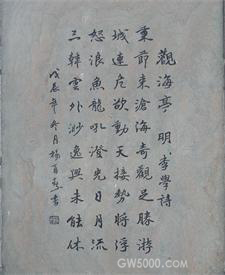 觀海亭 明 李學詩
秉節来滄海奇觀足勝游
城連危欲動天接勢將浮
怒浪魚龍吼澄光日月流
三韓雲外渺逸興未能休
戊辰年冬月楊 書
GW5000.com